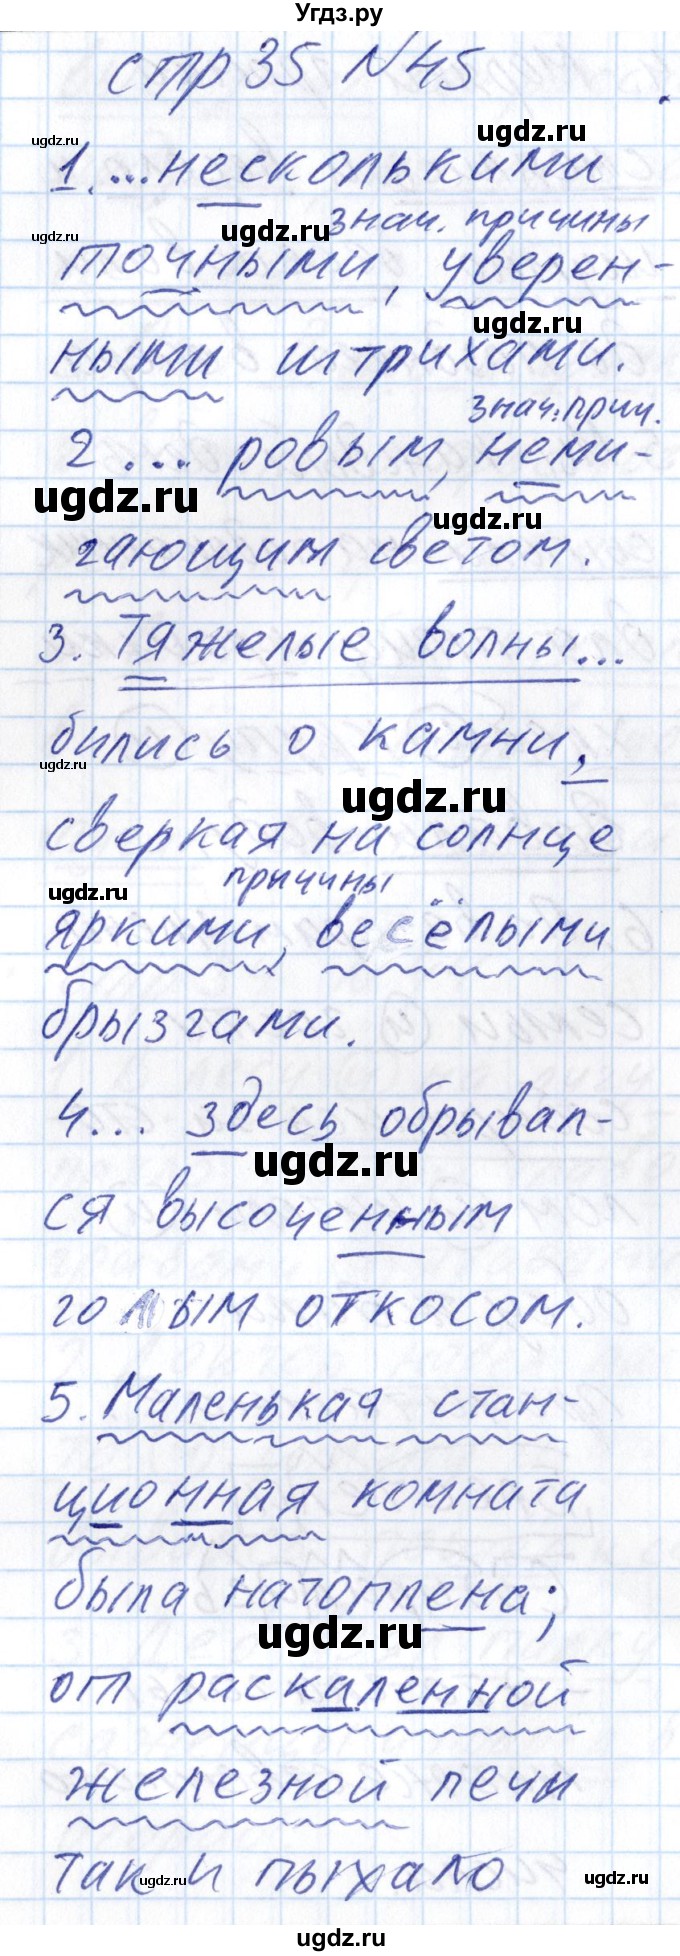 Угдз.ру
стр 35 №45
1. ...несколькими
знач. причины
точными, уверен-
ными штрихами.
знач. прич.
2 ... ровым, неми-
гающим светом.
3. Тяжелые волны...
бились о камни,
сверкая на солнце
причины
яркими, весёлыми
брызгами.
4... здесь обрывал-
ся высоченным
голым откосом.
5. Маленькая стан-
ционная комната
была натоплена;
от раскаленной
железной печи
так и пыхало
ugdz.ru